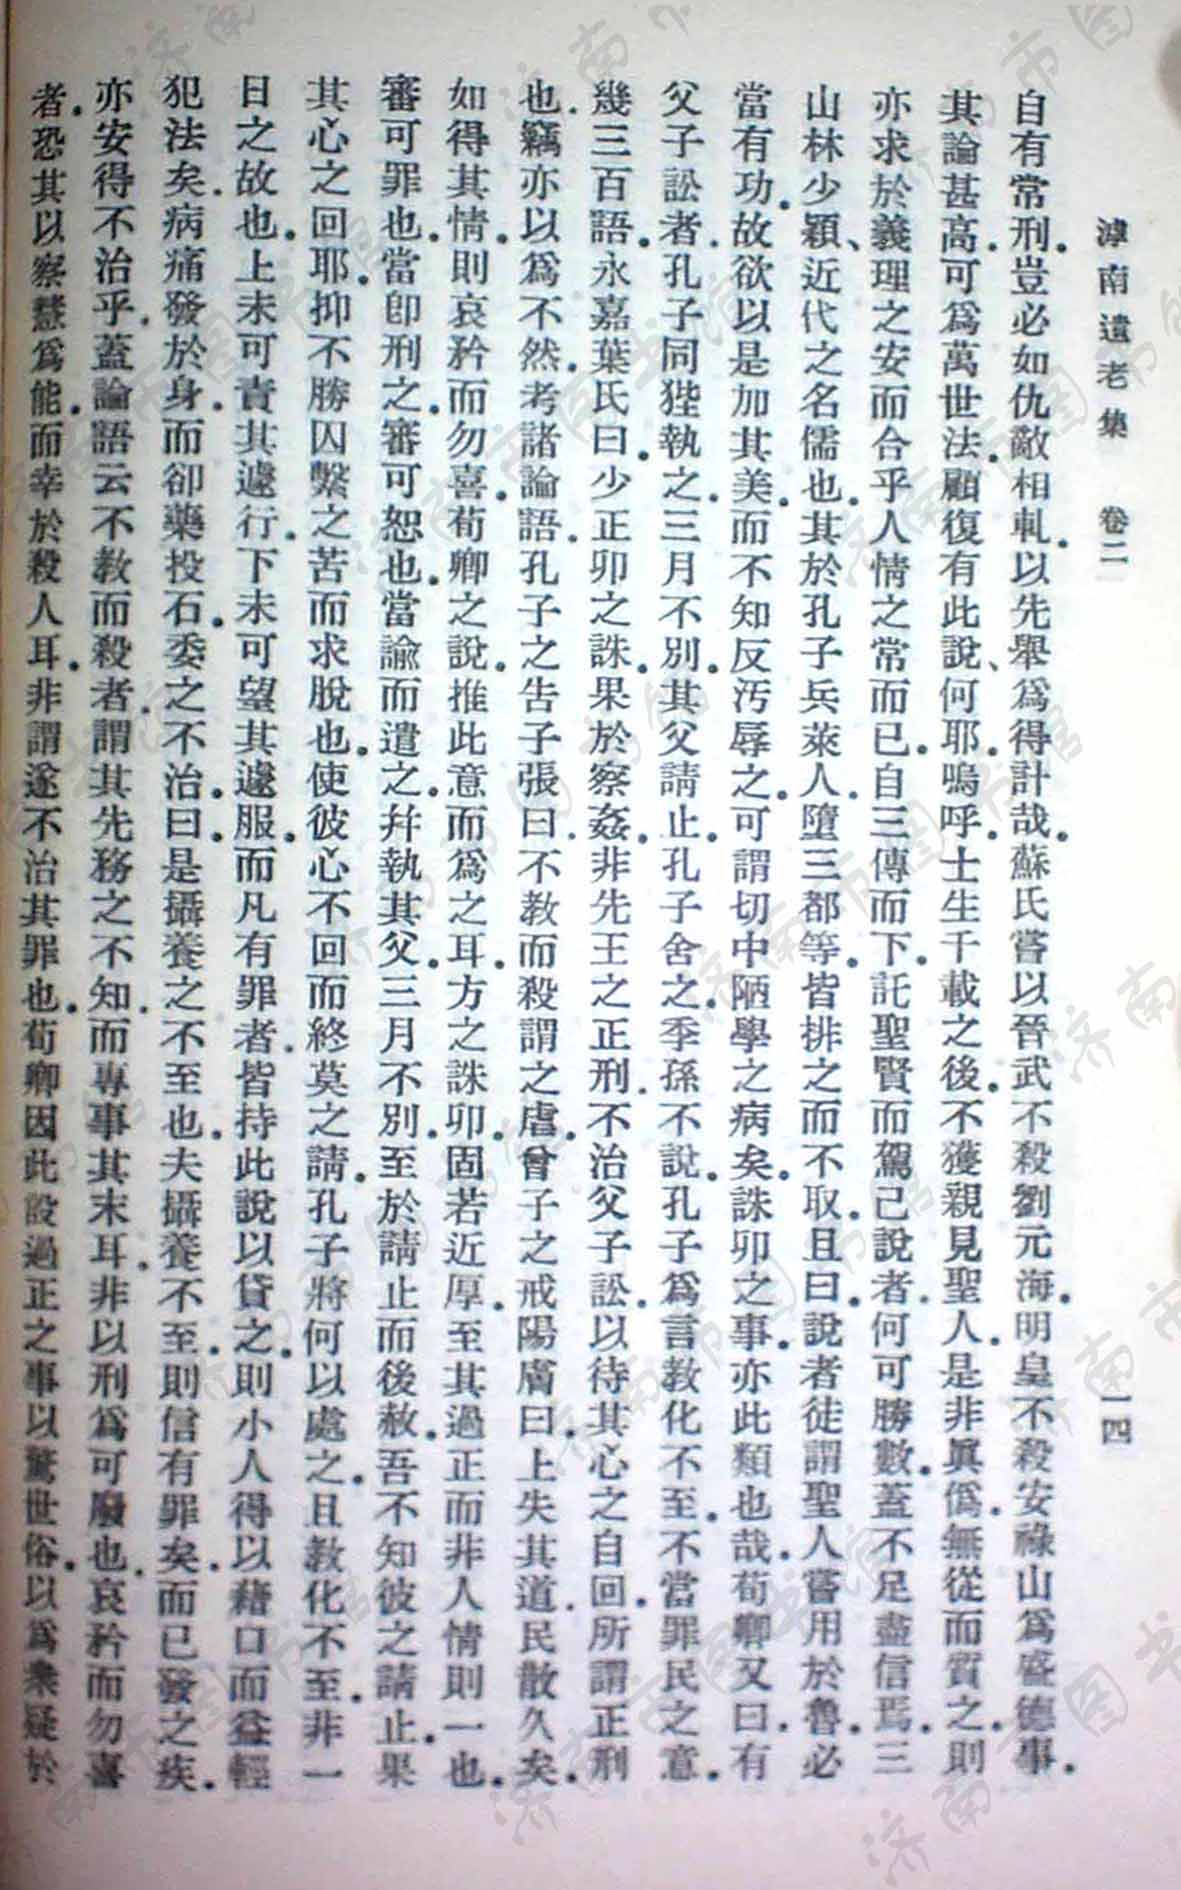 滹南遺老集　卷二　一四
自有常刑．豈必如仇敵相軋．以先舉爲得計哉．蘇氏嘗以晉武不殺劉元海．明皇不殺安祿山爲盛德事．
其論甚高．可爲萬世法．顧復有此說、何耶．嗚呼．士生千載之後．不獲親見聖人．是非眞僞．無從而質之．則
亦求於義理之安而合乎人情之常而已．自三傳而下．託聖賢而駕己說者．何可勝數．蓋不足盡信焉．三
山林少穎、近代之名儒也．其於孔子兵萊人．墮三都等．皆排之而不取．且曰．說者徒謂聖人嘗用於魯．必
當有功．故欲以是加其美．而不知反汚辱之．可謂切中陋學之病矣．誅卯之事．亦此類也哉．荀卿又曰．有
父子訟者．孔子同狴執之．三月不別．其父請止．孔子舍之．季孫不說．孔子爲言教化不至．不當罪民之意．
幾三百語．永嘉葉氏曰．少正卯之誅．果於察姦．非先王之正刑．不治父子訟．以待其心之自回．所謂正刑
也．竊亦以爲不然．考諸論語．孔子之告子張曰．不教而殺謂之虐．曾子之戒陽膚曰．上失其道．民散久矣．
如得其情．則哀矜而勿喜．荀卿之說．推此意而爲之耳．方之誅卯．固若近厚．至其過正而非人情則一也．
審可罪也．當卽刑之．審可恕也．當諭而遣之．幷執其父．三月不別．至於請止而後赦．吾不知彼之請止．果
其心之回耶．抑不勝囚繫之苦而求脫也．使彼心不回而終莫之請．孔子將何以處之．且教化不至．非一
日之故也．上未可責其遽行．下未可望其遽服．而凡有罪者．皆持此說以貸之．則小人得以藉口而益輕
犯法矣．病痛發於身．而卻藥投石．委之不治．曰．是攝養之不至也．夫攝養不至．則信有罪矣．而已發之疾．
亦安得不治乎．蓋論語云不教而殺者．謂其先務之不知．而專事其末耳．非以刑爲可廢也．哀矜而勿喜
者．恐其以察慧爲能．而幸於殺人耳．非謂遂不治其罪也．荀卿因此設過正之事以驚世俗．以爲衆疑於